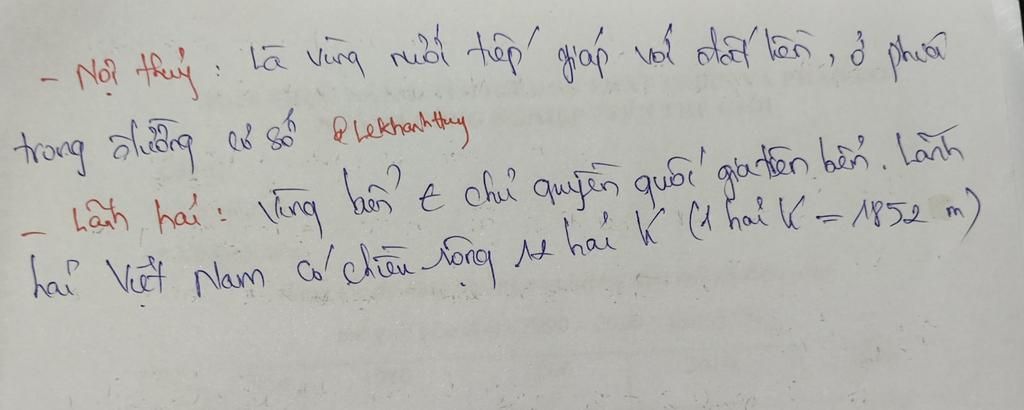 - Nội thuỷ : Là vùng nước tiếp giáp với đất liền, ở phía
trong đường cơ sở @Lekhanhthuy
- Lãnh hải : Vùng biển € chủ quyền quốc gia trên biển. Lãnh
hải Việt Nam có chiều rộng 12 hải lí (1 hải lí = 1852 m)